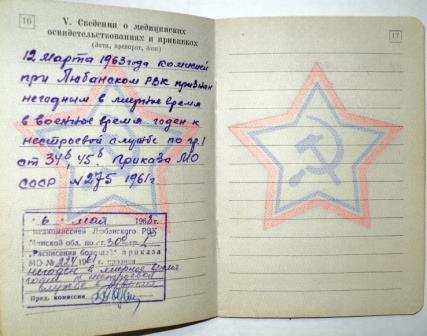 16
V. Сведения о медицинских
освидетельствованиях и прививках
(дата, препарат, доза)
12 марта 1963 года комиссией
при Любанском РВК признан
негодным в мирное время
в военное время годен к
нестроевой службе по гр. I
ст 34б, 45б Приказа МО
СССР №275 1961г.
"6" мая 1968г.
медкомиссией Любанского РВК
Минской обл. по ст. 30
"Расписания болезней" приказа
МО № 224 признан
негоден в мирное время
годен к нестроевой
службе в
Пред. комиссии
17